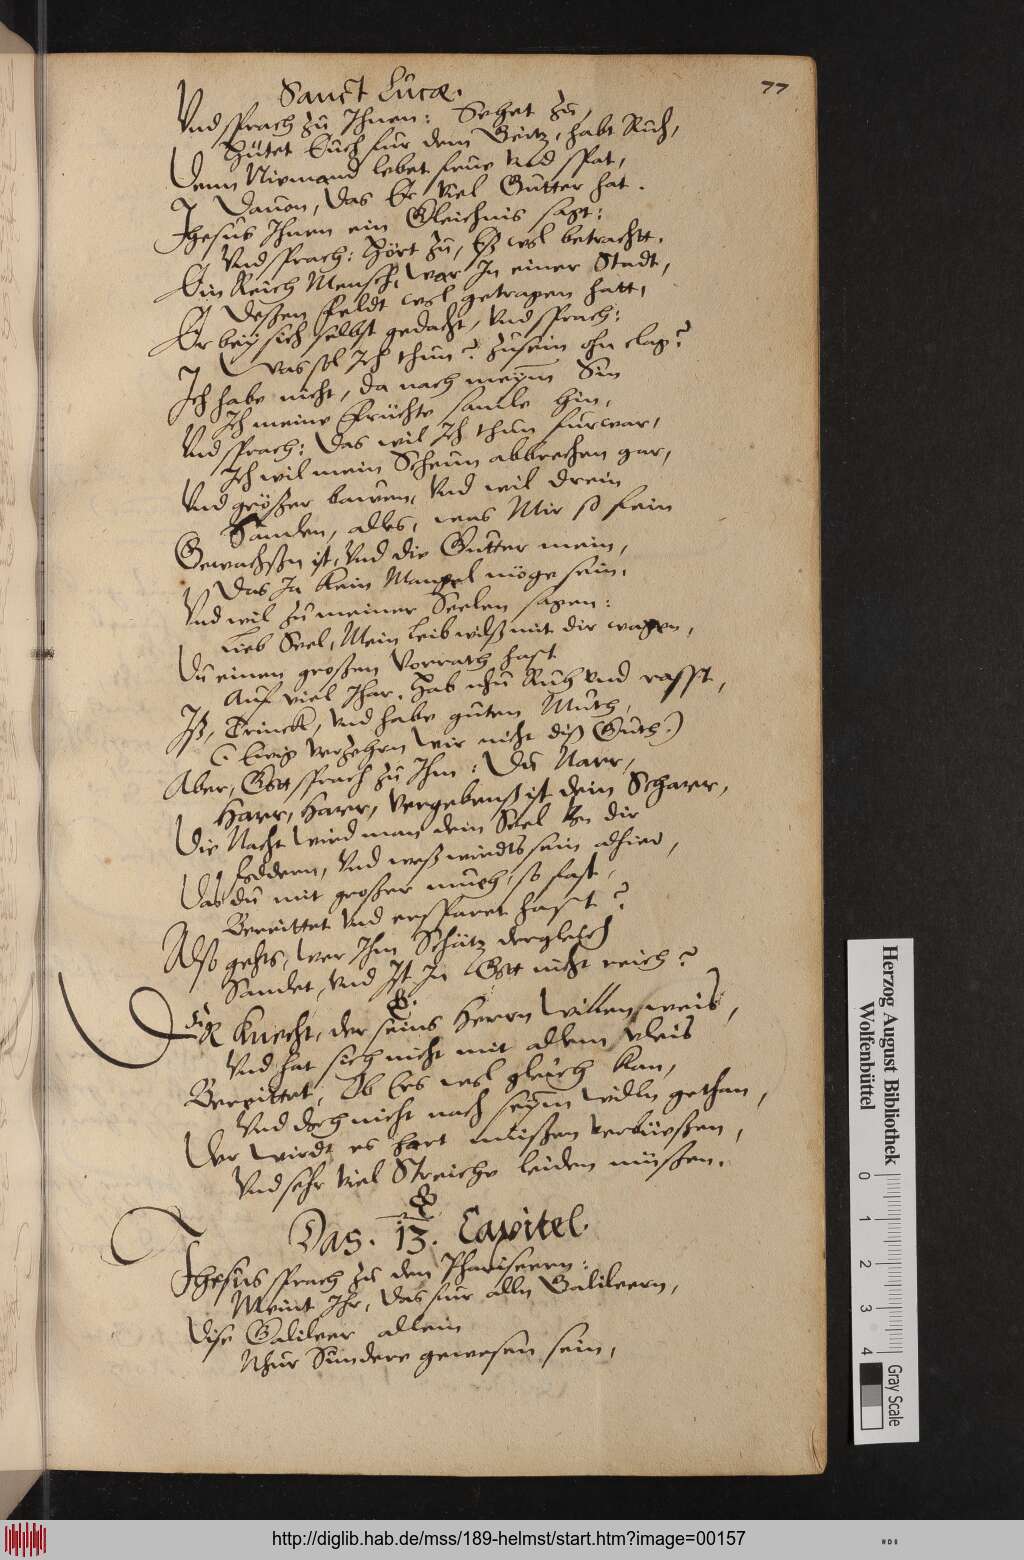 Sanct Lucæ.
77
Vnd sprach zu Ihnen: Sehet zu,
Hütet Euch fur dem Geitz, habt Ruh,
Denn Niemand lebet frue vnd spat,
Dauon, das Er viel Gutter hat.
Jhesus Ihnen ein Gleichnis sagt:
Vnd sprach: Hört zu, Eß wol betracht.
Ein Reich Mensch, war In einer Stadt,
Deßen Feldt wol getragen hatt,
Er bey sich selbst gedacht, vnd sprach:
Was sol Ich thun? zusein ohn clag?
Ich habe nicht, da nach meym Sin
Ich meine Früchte samle hin,
Vnd sprach: Das wil Ich thun furwar,
Ich wil mein Scheun abbrechen gar,
Vnd größer bawen, Vnd wil drein
Samlen, alles, was Mir so fein
Gewachsßn ist, Vnd die Gutter mein,
Das Ja kein Mangel möge sein.
Vnd wil zu meiner Seelen sagen:
Lieb Seel, Mein Leib wilß mit dir wagen,
Du einen großen Vorrath hast
Auf viel Jhar. Hab nhu Ruh vnd rasst,
Iß, Trinck, vnd habe guten Muth,
(Ewig verzehrn wir nicht diß Guth.)
Aber, Gott sprach zu Ihm: Du Narr,
Harr, Harr, vergebenß ist dein Scharr,
Die Nacht wird man dein Seel von dir
Foddern, Vnd weß wirdts sein alhier,
Das du mit großer mueh, so fast,
Bereittet vnd ersparet hast?
Also gehts, wer Ihm Schätz dergleich
Samlet, vnd Ist In Gott nicht reich?
Der Knecht, der seins Herrn willen weis,
Vnd hat sich nicht mit allem vleis
Bereittet, Ob Ers wol gleich kan,
Vnd doch nicht nach seym willn gethan,
Der wirdt es hart mußen verbueßen,
Vnd sehr viel Streiche leiden müßen.
Das. 13. Capitel.
Jhesus sprach zu den Phariseern:
Meint Ihr, das fur alln Galileern,
Dise Galileer allein
Nhur Sundere gewesen sein,
Herzog August Bibliothek
Wolfenbüttel
0 1 2 3 4
Gray Scale
http://diglib.hab.de/mss/189-helmst/start.htm?image=00157